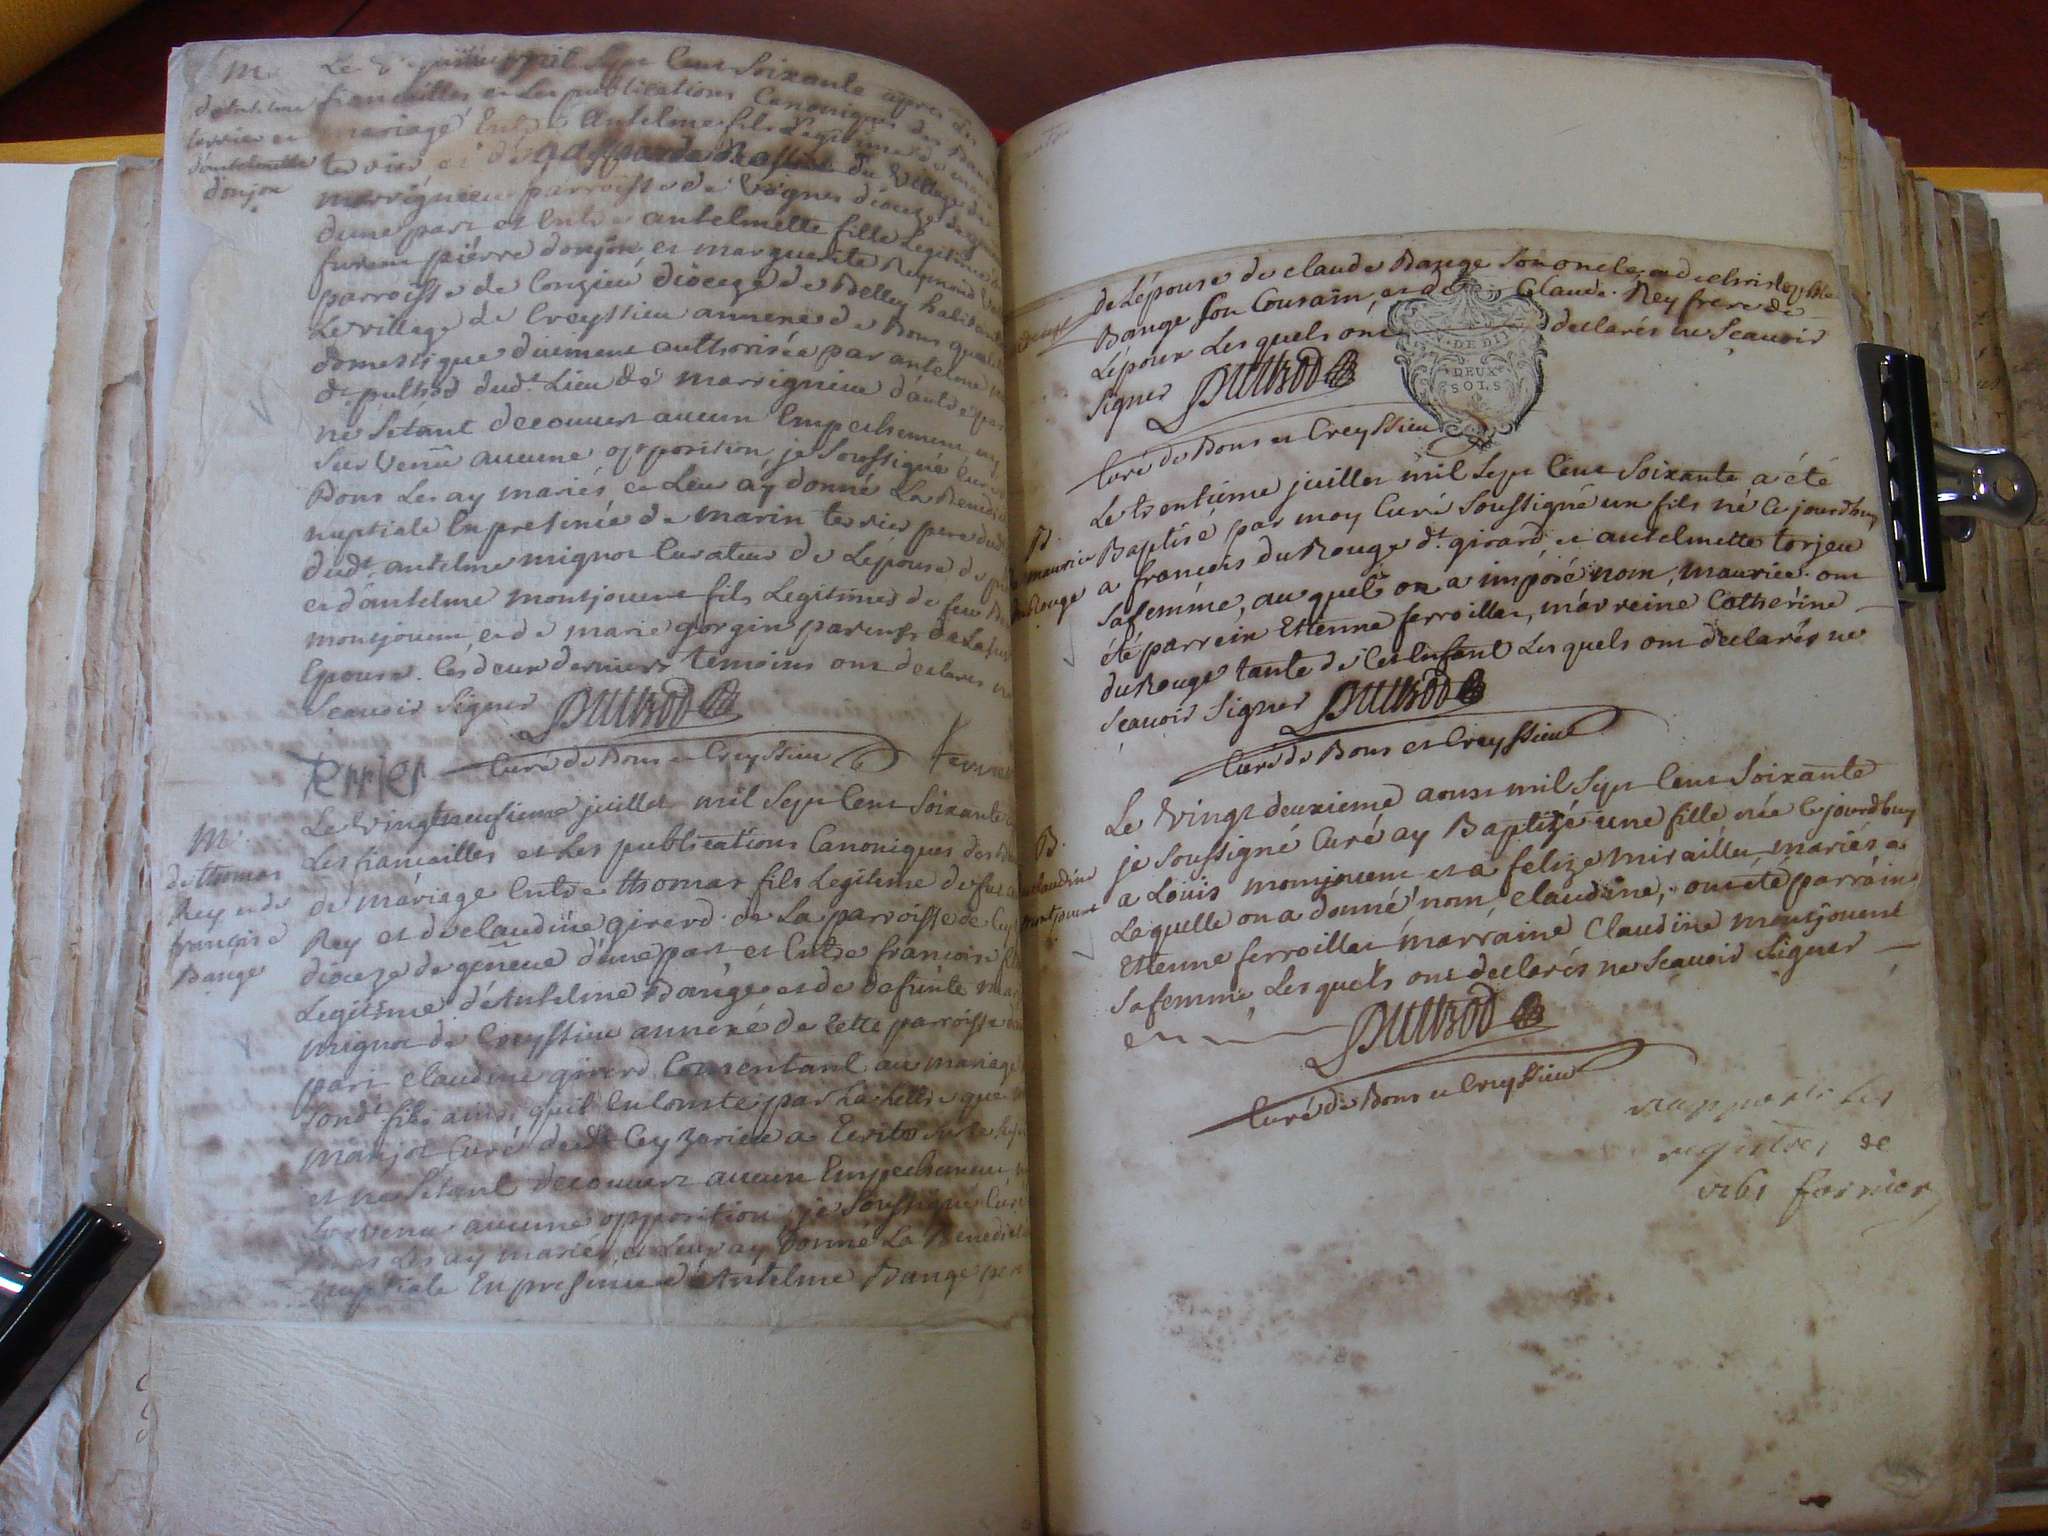 M.
d'antelme
terrier et
d'antelmette
donjon
Le mil Sept Cent Soixante apres Les
fiancailles et Les publications Canoniques des
mariage Entre Antelme fils Legitime de
terrier et de du Village de
marrignieu parroisse de Vognes dioceze de
d'une part et Entre antelmette fille Legitime
furent pierre donjon et marguerite Reymond
parroisse de Conzieu dioceze de Belley habitant
Le village de Creyssieu annexe de Bons
domestique düement authorisée par antelme
de pulhod dudt. Lieu de marrignieu d'autre par
ne S'etant decouvert aucun Empechement ny
Survenü aucune opposition, je Soussigné Curé
Bons Les ay mariés, et Leur ay donné La Benedic
nuptiale En presence de marin terrier pere dud
dudt. antelme mignot Curateur de L'epouse, de
et d'antelme montjouent fils Legitimes de feu
montjouent et de marie gorgin parents de La
Epouse. Ces deux derniers temoins ont declarés ne
Scauoir Signer Dutrod
terrier Curé de Bons et Creyssieu
M.
de thomas
Rey et de
francoise
Bange
Le Vingtneufieme juillet mil Sept Cent Soixante
Les fiancailles et Les publications Canoniques des
de mariage Entre thomas fils Legitime de feu
Rey et de claudine girerd de La parroisse de
dioceze de genêve d'une part et Entre francoise
Legitime d'Antelme Bange et de defunte
mignot de Creyssieu annexe de Cette parroisse
part claudine girerd Consentant au mariage
Sondt. fils ainsi qu'il Enconste par La Lettre que
manjot Curé dudt. Ceyzerieu a Ecrite
et ne S'etant decouvert aucun Empechement,
Survenu aucune opposition, je Soussigné Curé
Bons Les ay mariés, et Leur ay donné La Benedict
nuptiale En presence d'Antelme Bange pere
de L'épouse de claude Bange Son oncle,
Bange Son Cousain, et de Claude Rey frere de
L'époux Les quels ont declarés ne Scauoir
Signer Dutrod
Curé de Bons et Creyssieu
DE DI
DEUX
SOLS
B.
maurice
duRouge
Le trentieme juillet mil Sept Cent Soixante a été
Baptisé par moy Curé Soussigné un fils né Ce jourdhuy
a francois duRouge dt. girard, et antelmette torjeu
Sa femme, au quel on a imposé nom, maurice. ont
été parrein Etienne ferroillet, marreine Catherine
duRouge tante de Cet Enfant Les quels ont declarés ne
Scauoir Signer Dutrod
Curé de Bons et Creyssieu
B.
claudine
montjouent
Le Vingt deuxieme aoust mil Sept Cent Soixante
je Soussigné Curé ay Baptizé une fille née Ce jourdhuy
a Louis monjouent et a felize miraillet mariés a
Laquelle on a donné nom, claudine, ont été parrain
Etienne ferroillet marraine Claudine montjouent
Sa femme, Les quels ont declarés ne Scauoir Signer
Dutrod
Curé de Bons et Creyssieu
rapporté les
registres de
1761 fornier